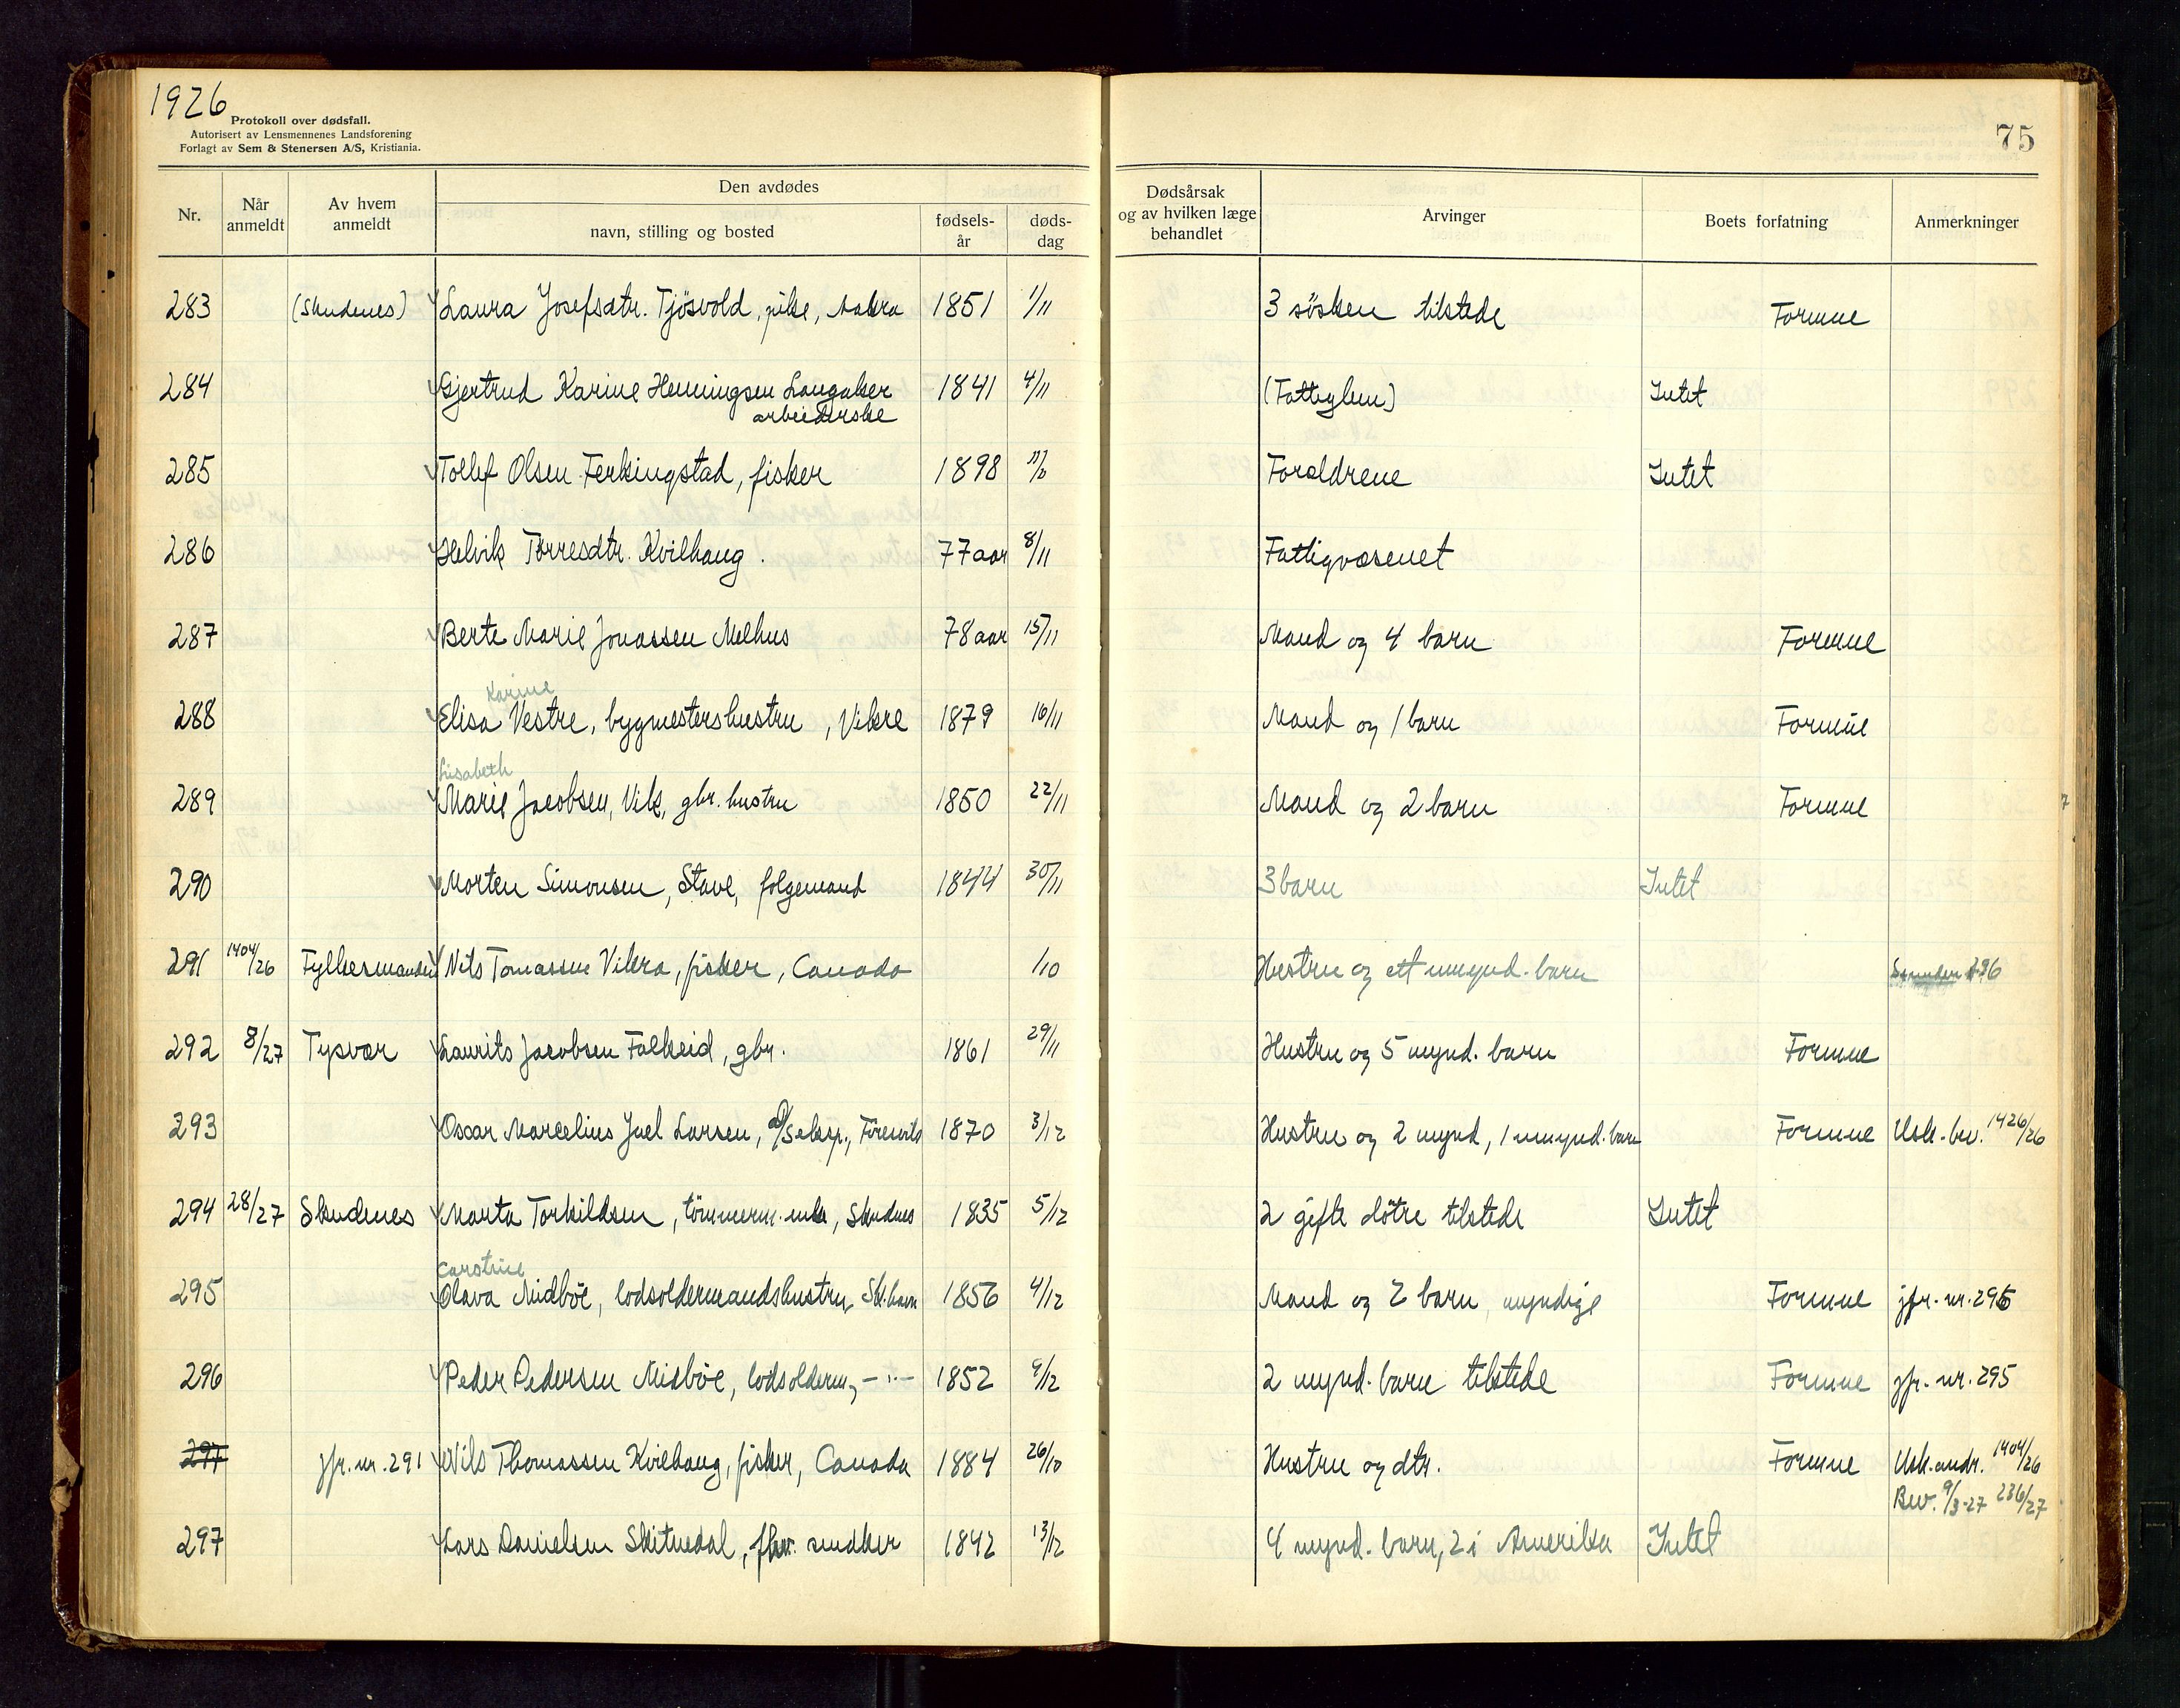 1926
Protokoll over dødsfall.
Autorisert av Lensmennenes Landsforening
Forlagt av Sem & Stenersen A/S, Kristiania.
75
Nr. Når anmeldt Av hvem anmeldt Den avdødes navn, stilling og bosted fødsels-år døds-dag Dødsårsak og av hvilken læge behandlet Arvinger Boets forfatning Anmerkninger
283 (Skudenes) Laura Josefsdtr. Tjösvold, pike, Aakra 1851 1/11 3 sösken tilstede Formue
284 Gjertrud Karine Henningsen Langaker 4/11 1841 Intet
arbeiderske
285 Tollef Olsen Ferkingstad, fisker 1898 Foreldrene Intet
286 Helvik Tørresdtr. Kvilhaug. 77 aar 8/11 Fattigvæsenet
287 Berte Marie Jonassen Melhus 78 aar 15/11 Mand og 4 barn Formue
Karine
288 Elisa Vestre, bygmestershustru, Vikre 1879 16/11 Mand og 1 barn Formue
Lisabeth
289 Marie Jacobsen, Vik, gbr. hustru 1850 22/11 Mand og 2 barn Formue
290 Morten Simonsen, Stave, folgemand 1844 30/11 3 barn Intet
291 1404/26 Fylkesmanden Nils Tomassen Vikra, fisker, Canada 1/10 Hustru og ett umynd. barn
292 8/27 Tysvær Laurits Jacobsen Falkeid, gbr. 1861 29/11 Hustru og 5 mynd. barn Formue
293 Oscar Marcelius Juel Larsen, 1870 3/12 Hustru og 2 mynd, 1 umynd. barn Formue Usk. bev. 1426/26
294 28/27 Skudenes Marta Torkildsen, tömmerm. enke, Skudnes 1835 5/12 2 gifte dötre tilstede Intet
Carstine
295 Olava Midböe, lodsoldermandshustru, Sk.havn 1856 4/12 Mand og 2 barn, myndige Formue jfr. nr. 296
296 Peder Pedersen Midböe, lodsolderm, -"- 1852 9/12 2 mynd. barn tilstede Formue jfr. nr. 295
297 jfr. nr. 291 Nils Thomassen Kvilhaug, fisker, Canada 1884 26/10 Hustru og dtr. Formue Usk. andr. 1404/26
Bev. 9/3-27 236/27
297 Lars Danielsen Skitnedal, fhv. snedker 1842 13/12 4 mynd. barn, 2 i Amerika Intet